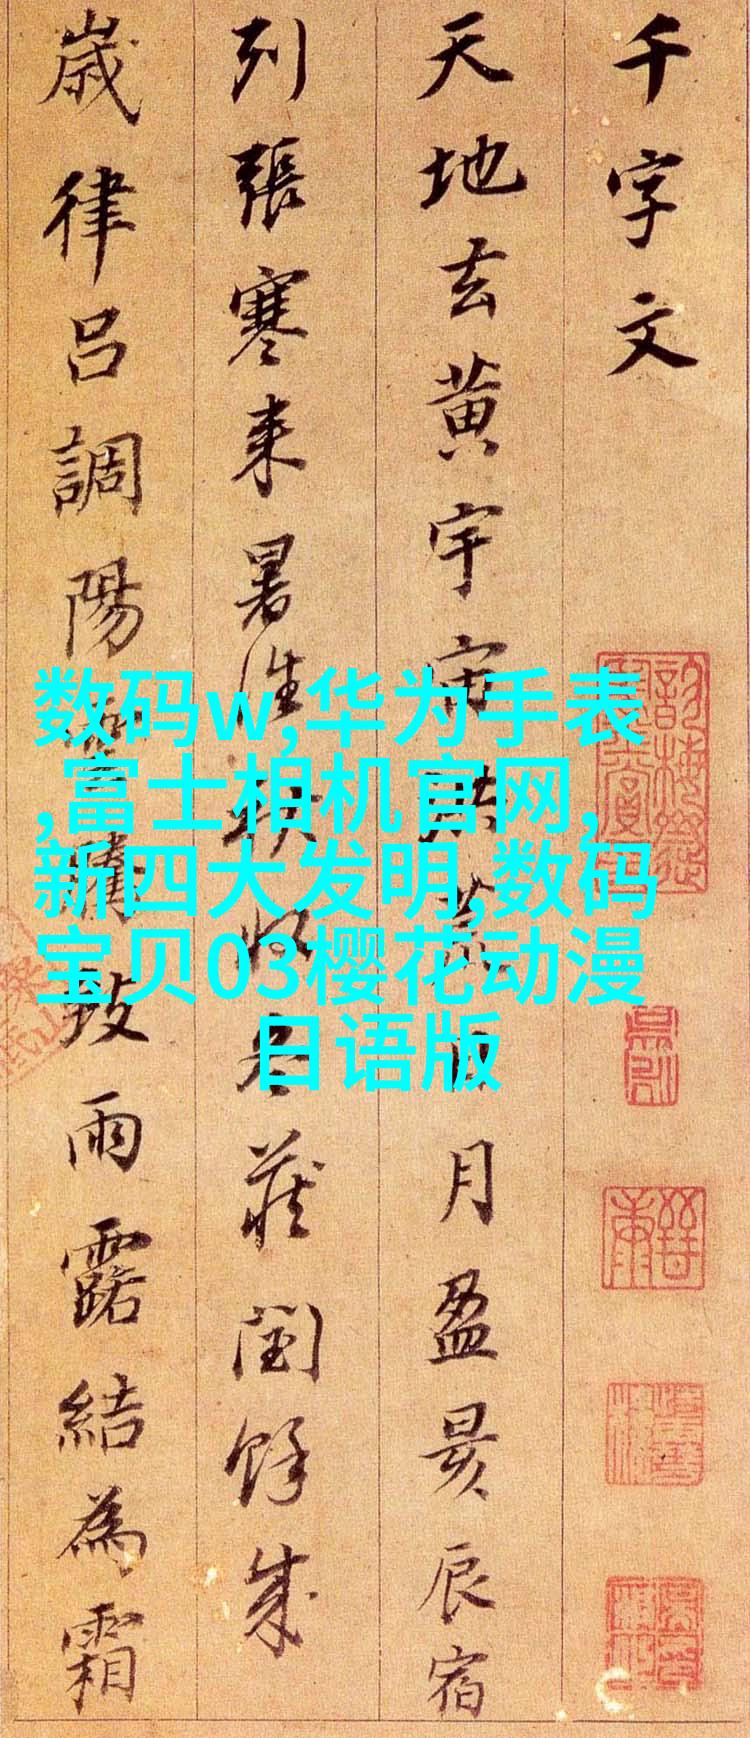 千字文
天地玄黄宇宙洪荒日月盈昃辰宿
列張寒来暑往秋收冬蔵閏餘成
歳律吕調陽雲騰致雨露結為霜
数码w,华为手表
,富士相机官网,
新四大发明,数码
宝贝03樱花动漫
日语版